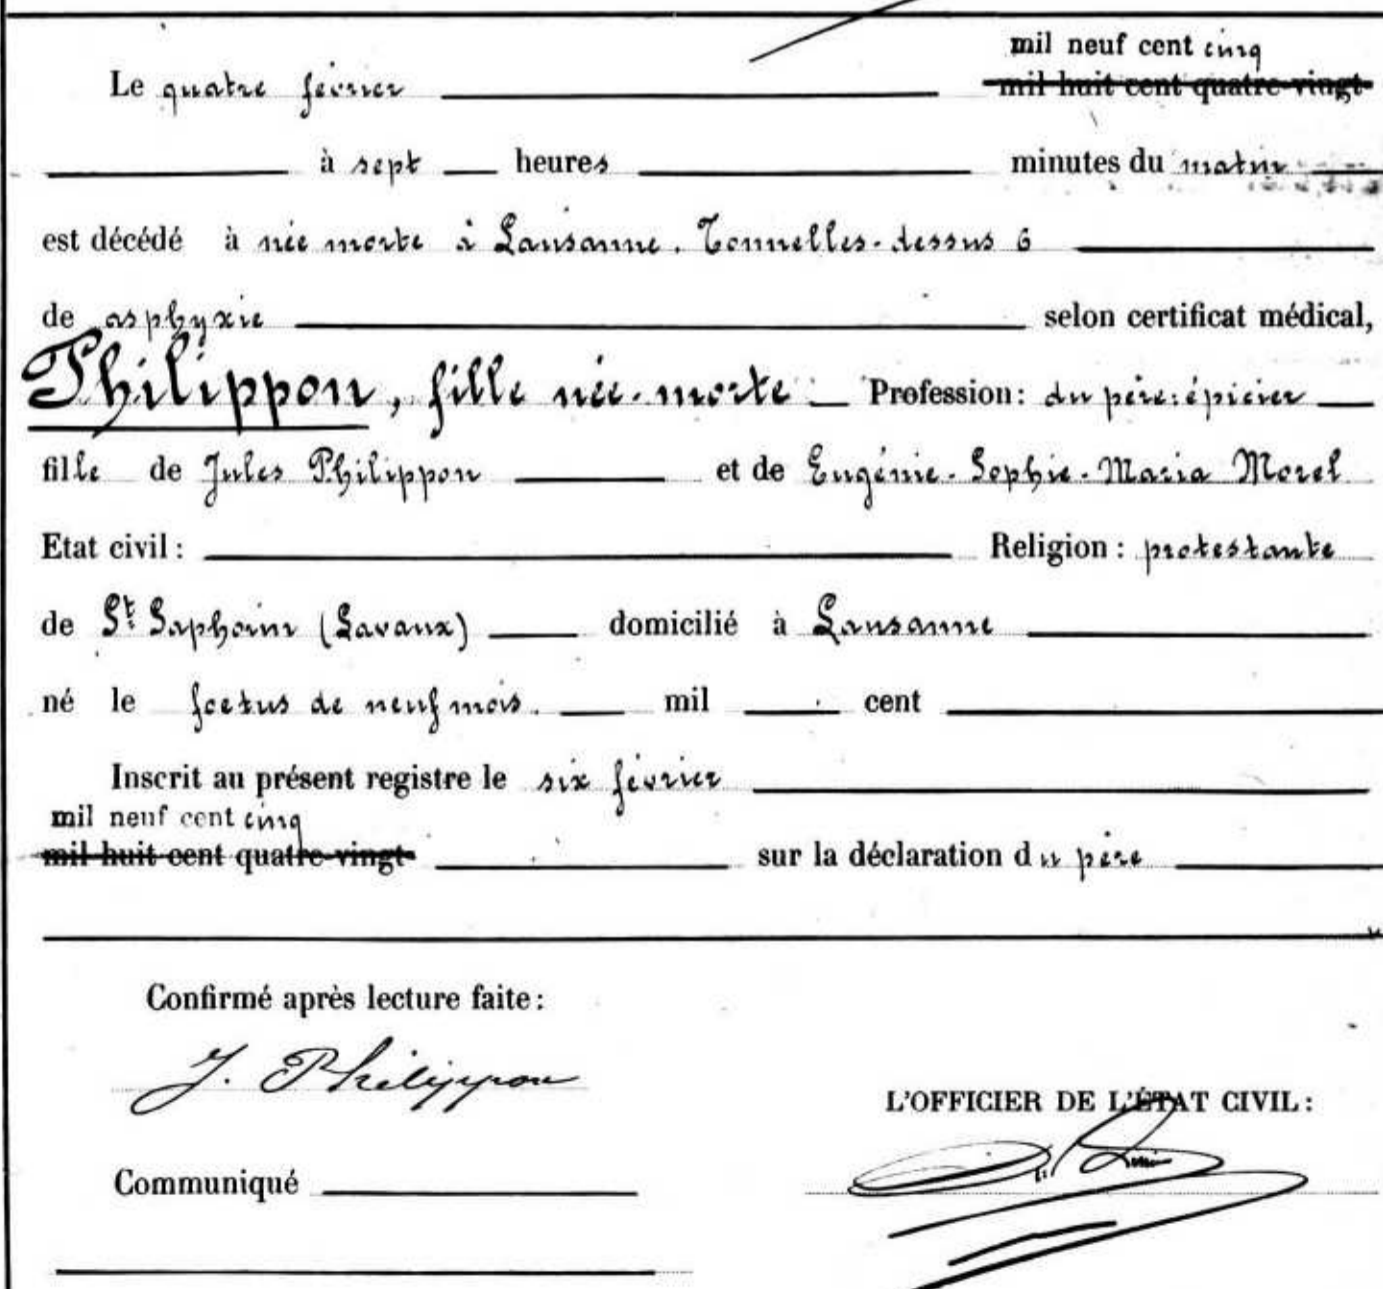 mil neuf cent cinq
Le quatre février mil huit cent quatre-vingt
à sept heures minutes du matin
est décédé à née morte à Lausanne. Tonnelles-dessus 6
de asphyxie selon certificat médical,
Philippon, fille née-morte Profession: du père: épicier
fille de Jules Philippon et de Eugénie-Sophie-Maria Morel
Etat civil: Religion: protestante
de St Saphorin (Lavaux) domicilié à Lausanne
né le foetus de neuf mois. mil cent
Inscrit au présent registre le six février
mil neuf cent cinq
mil huit cent quatre-vingt sur la déclaration du père
Confirmé après lecture faite:
J. Philippon
L'OFFICIER DE L'ÉTAT CIVIL:
Communiqué